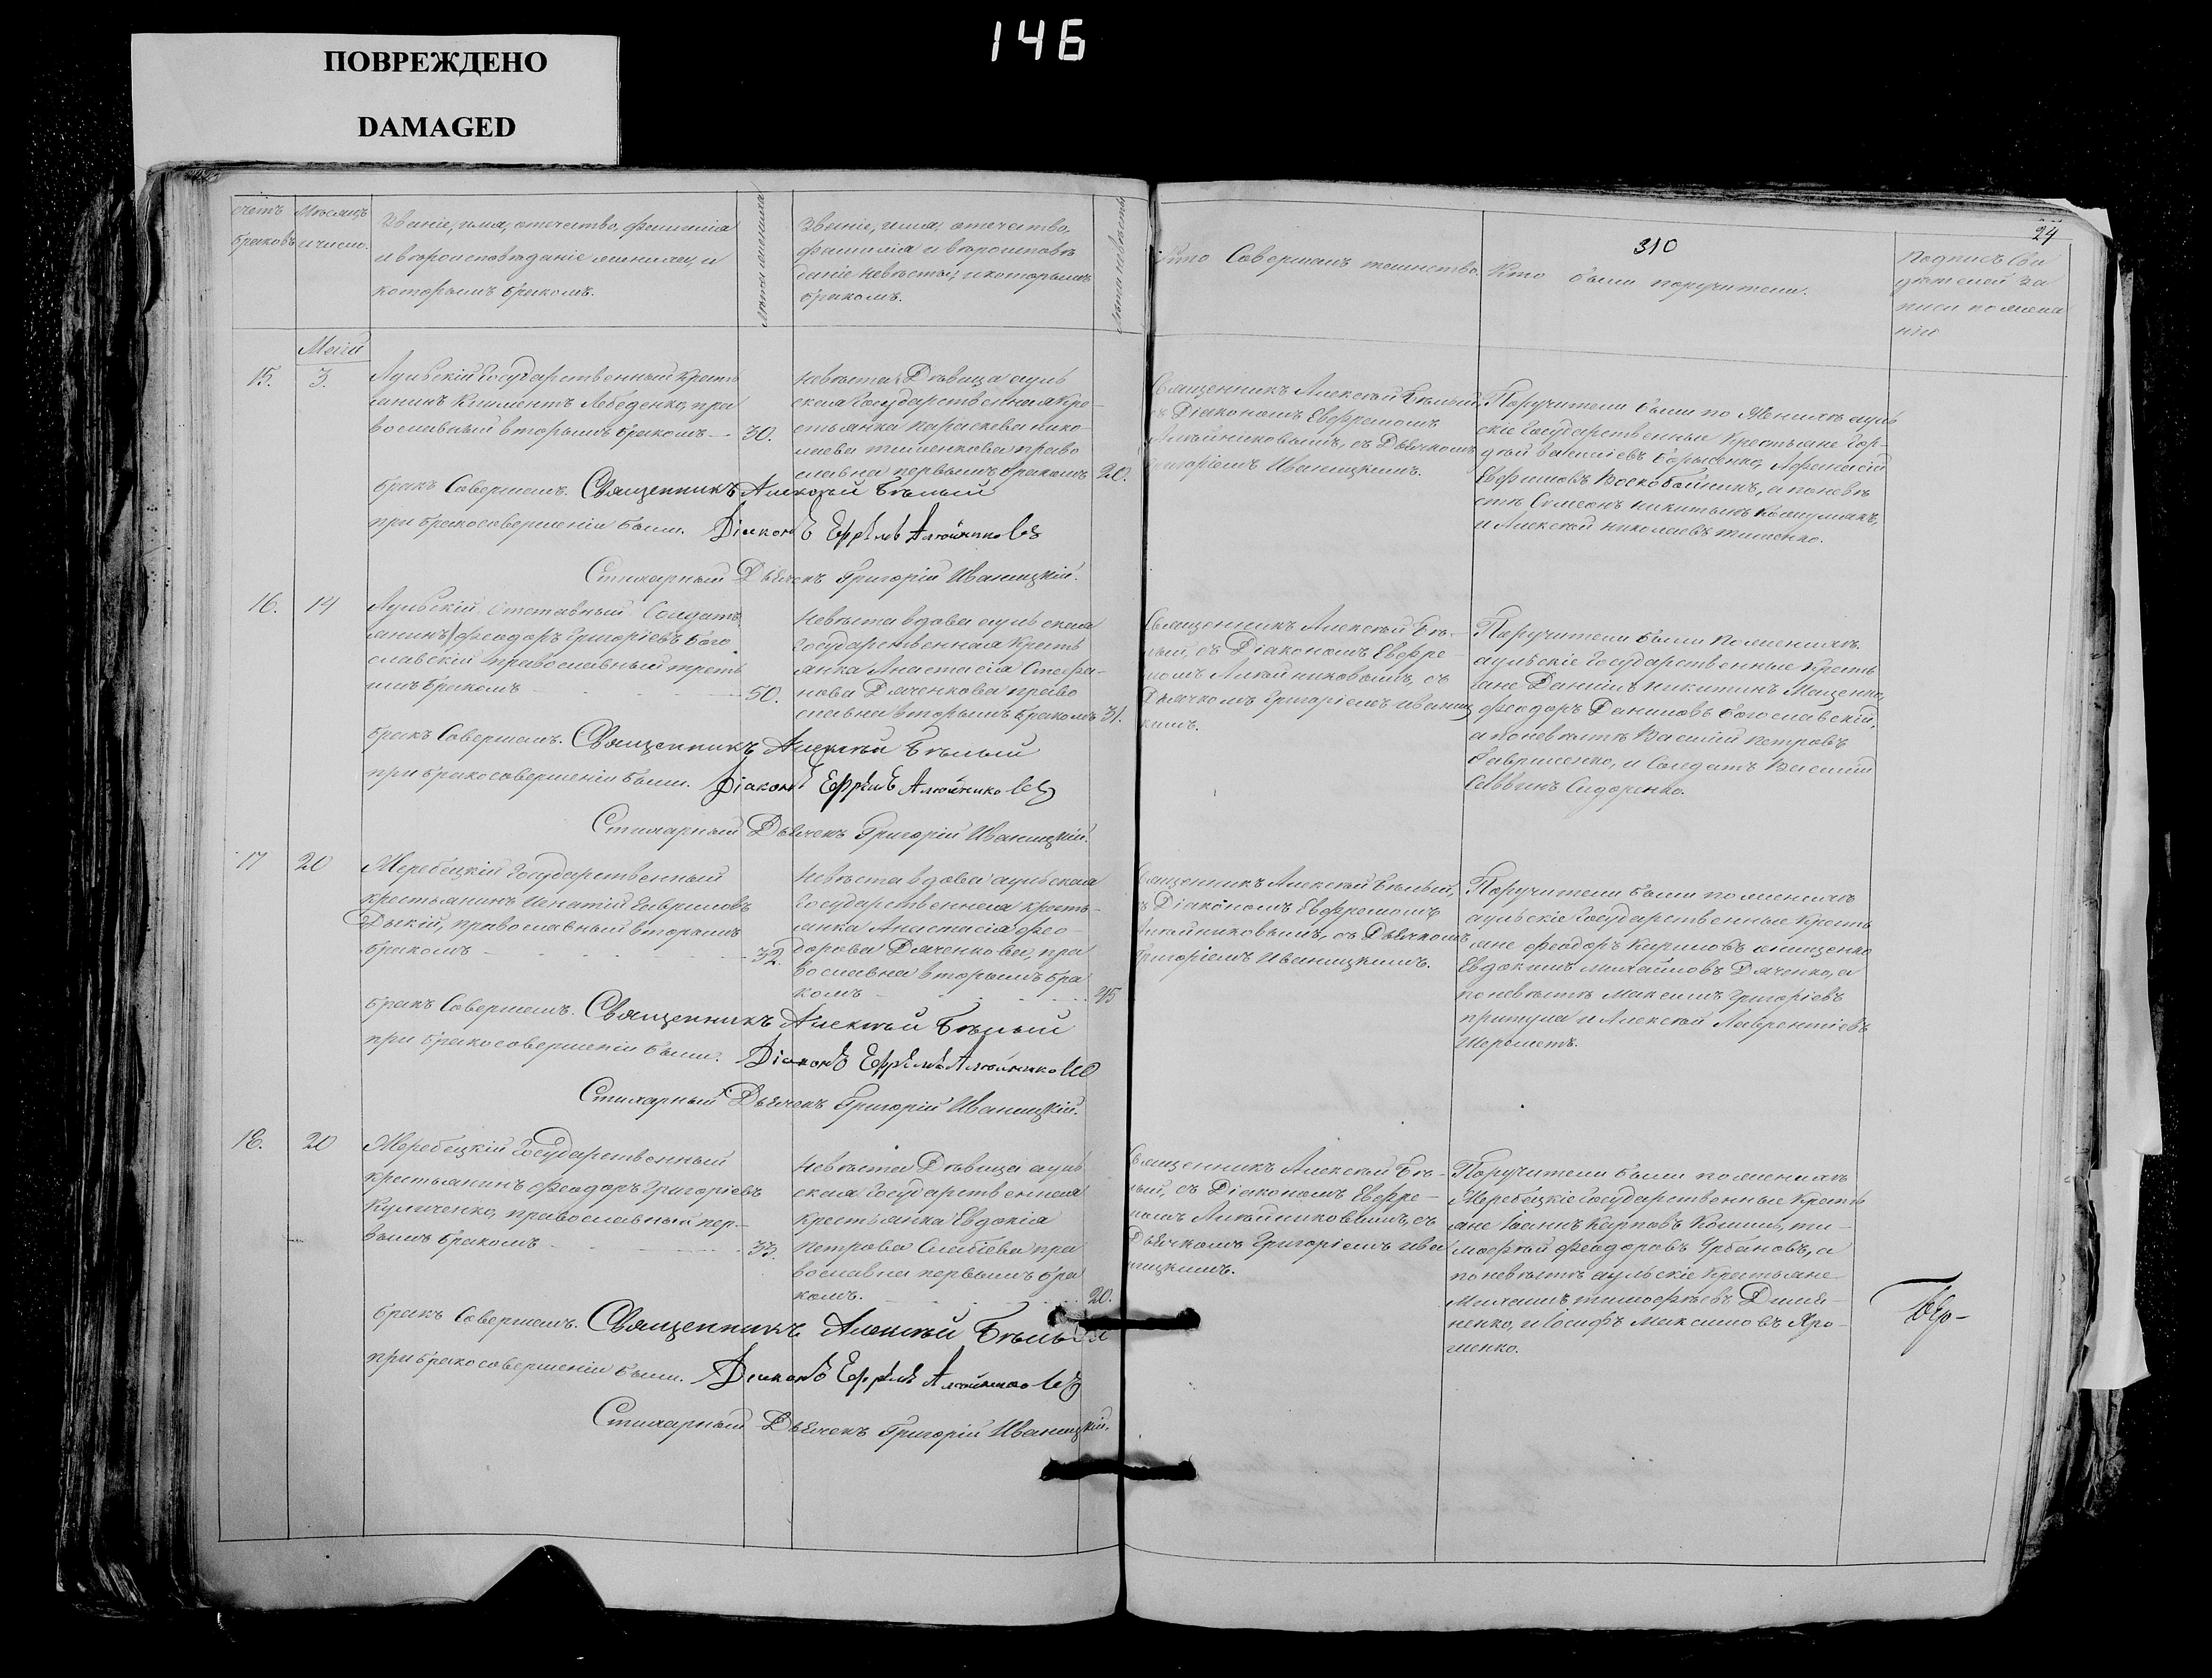 146
ПОВРЕЖДЕНО
DAMAGED
310
24
счетъ браковъ
Мѣсяцъ и число.
Званіе, имя, отечество, фамилія
и вѣроисповѣданіе жениха, и
которымъ бракомъ.
Лѣта жениха
Званіе, имя, отечество,
фамилія и вѣроисповѣ
даніе невѣсты, и которымъ
бракомъ.
Лѣта невѣсты
Кто Совершалъ таинство.
Кто были поручители.
Подпись сви
дѣтелей за
писи по жела
нію
Май
15.
3.
Аульскій Государственный Кресть
янинъ Климентъ Лебеденко, пра
вославный вторымъ бракомъ
30.
Невѣста Дѣвица ауль
ская Государственная Кре-
стьянка Параскева Нико-
лаева Тименкова право
славна первымъ бракомъ
20.
Священникъ Алексѣй Бѣлый,
съ Діакономъ Евфремомъ
Алѣйниковымъ, съ Дьячкомъ
Григоріемъ Иваницкимъ.
Поручители были по Женихѣ ауль
скіе Государственные Крестьяне Гор-
дѣй Борысенко, Афанасій
Ефимовъ Воскобойникъ, а по невѣ
стѣ Симеонъ Никитинъ
и Алексѣй Николаевъ Тименко.
бракъ Совершалъ. Священникъ Алексѣй Бѣлый
при бракосовершеніи были. Діаконъ Ефремъ Алѣйниковъ
Стихарный Дьячекъ Григорій Иваницкій.
16.
14
Аульскій отставный Солдатъ
янинъ Феодоръ Григоріевъ Бого
славскій православный треть
имъ бракомъ
50.
Невѣста вдова аульская
Государственная Кресть
янка Анастасія Стефа-
нова Дяченкова право
славна вторымъ бракомъ
31.
Священникъ Алексѣй Бѣ-
лый, съ Діакономъ Евфре-
момъ Алѣйниковымъ, съ
Дьячкомъ Григоріемъ Иваниц
кимъ.
Поручители были по женихѣ
аульскіе Государственные Кресть
яне Даніилъ Никитинъ Мащенко,
Феодоръ Даниловъ Богославскій,
а по невѣстѣ Василій Петровъ
Гавриленко, и Солдатъ Василій
Саввинъ Сидоренко.
бракъ Совершалъ. Священникъ Алексѣй Бѣлый
при бракосовершеніи были. Діаконъ Ефремъ Алѣйниковъ
Стихарный Дьячекъ Григорій Иваницкій.
17
20
Меребецкій Государственный
крестьянинъ Игнатій Гавриловъ
Дыкій, православный вторымъ
бракомъ
32.
Невѣста вдова аульская
Государственная Кресть-
янка Анастасія Фео-
дорова Дяченкова, пра
вославна вторымъ бра
комъ
25
Священникъ Алексѣй Бѣлый,
съ Діакономъ Евфремомъ
Алѣйниковымъ, съ Дьячкомъ
Григоріемъ Иваницкимъ.
Поручители были по женихѣ
аульскіе Государственные Кресть
яне Феодоръ Кириловъ Онищенко
Евдокимъ Михайловъ Дяченко, а
по невѣстѣ Максимъ Григоріевъ
Притула и Алексѣй Лаврентіевъ
Шереметъ.
бракъ Совершалъ. Священникъ Алексѣй Бѣлый
при бракосовершеніи были. Діаконъ Ефремъ Алѣйниковъ
Стихарный Дьячекъ Григорій Иваницкій.
18.
20
Меребецкій Государственный
крестьянинъ Феодоръ Григоріевъ
Куличенко, православный пер-
вымъ бракомъ
33.
Невѣста Дѣвица ауль
ская Государственная
крестьянка Евдокія
Петрова пра
вославна первымъ бра
комъ.
20.
Священникъ Алексѣй Бѣ-
лый, съ Діакономъ Евфре-
момъ Алѣйниковымъ, съ
Дьячкомъ Григоріемъ Ива
ницкимъ.
Поручители были по женихѣ
Меребецкіе Государственные Кресть
яне Іоаннъ Карповъ Ти-
мофѣй Феодоровъ Урбановъ, а
по невѣстѣ аульскіе Крестьяне
Михаилъ Тимофѣевъ
ненко, и Іосифъ Максимовъ Яро-
шенко.
бракъ Совершалъ. Священникъ Алексѣй Бѣлый
при бракосовершеніи были. Діаконъ Ефремъ Алѣйниковъ
Стихарный Дьячекъ Григорій Иваницкій.